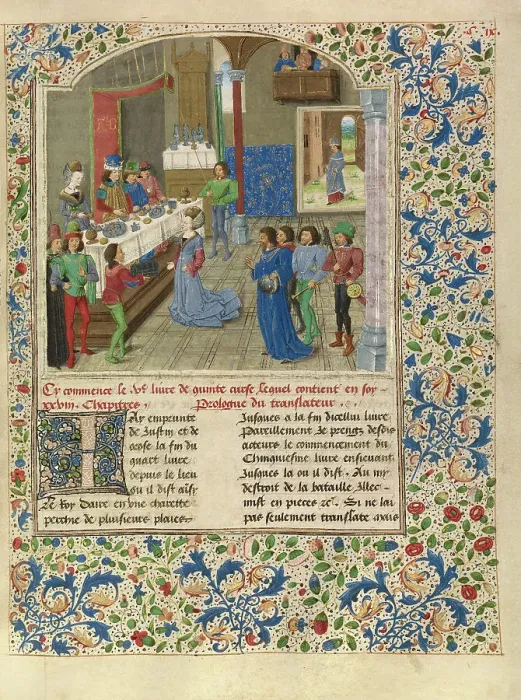 Cy commence le .ve. liure de quinte curse lequel contient en soy
xxviii. Chapitres. Prologue du translateur.
Iay empeunte
de Iustin et de
orose la fin du
quart liure
depuis le lieu
ou il dist ainsi
Le Roy daire en vne charette
perchie de pluiseurs plaies.
Iusques a la fin dicellui liure
Pareillement Ie prengz desdis
acteurs le commencement du
Chinquiesme liure ensieuant
Iusques la ou il dist. Au my
destroit de la bataille Illec
mist en pieces &c. Si ne lai
pas seulement translate mais